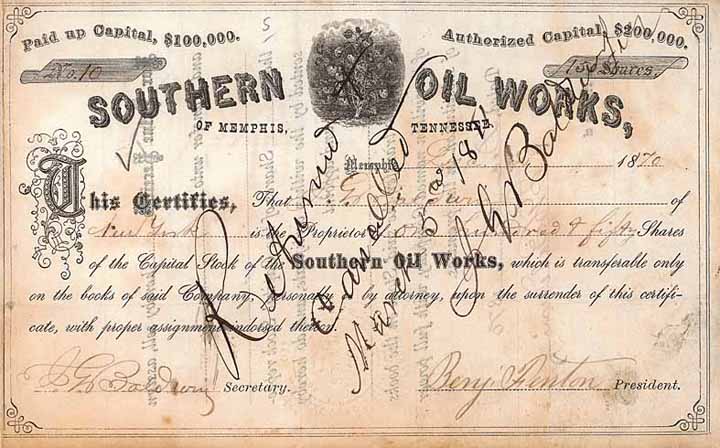 Paid up Capital, $100,000.
Authorized Capital, $200,000.
No. 10
150 Shares.
SOUTHERN OIL WORKS,
OF MEMPHIS, TENNESSEE,
Memphis 1870
This Certifies, That Baldwin of
New York is the Proprietor of one hundred & fifty Shares
of the Capital Stock of the Southern Oil Works, which is transferable only
on the books of said Company, personally or by attorney, upon the surrender of this certifi-
cate, with proper assignment endorsed thereon.
Returned
Cancelled
March 187
Baldwin
Baldwin Secretary.
Benj Fenton President.